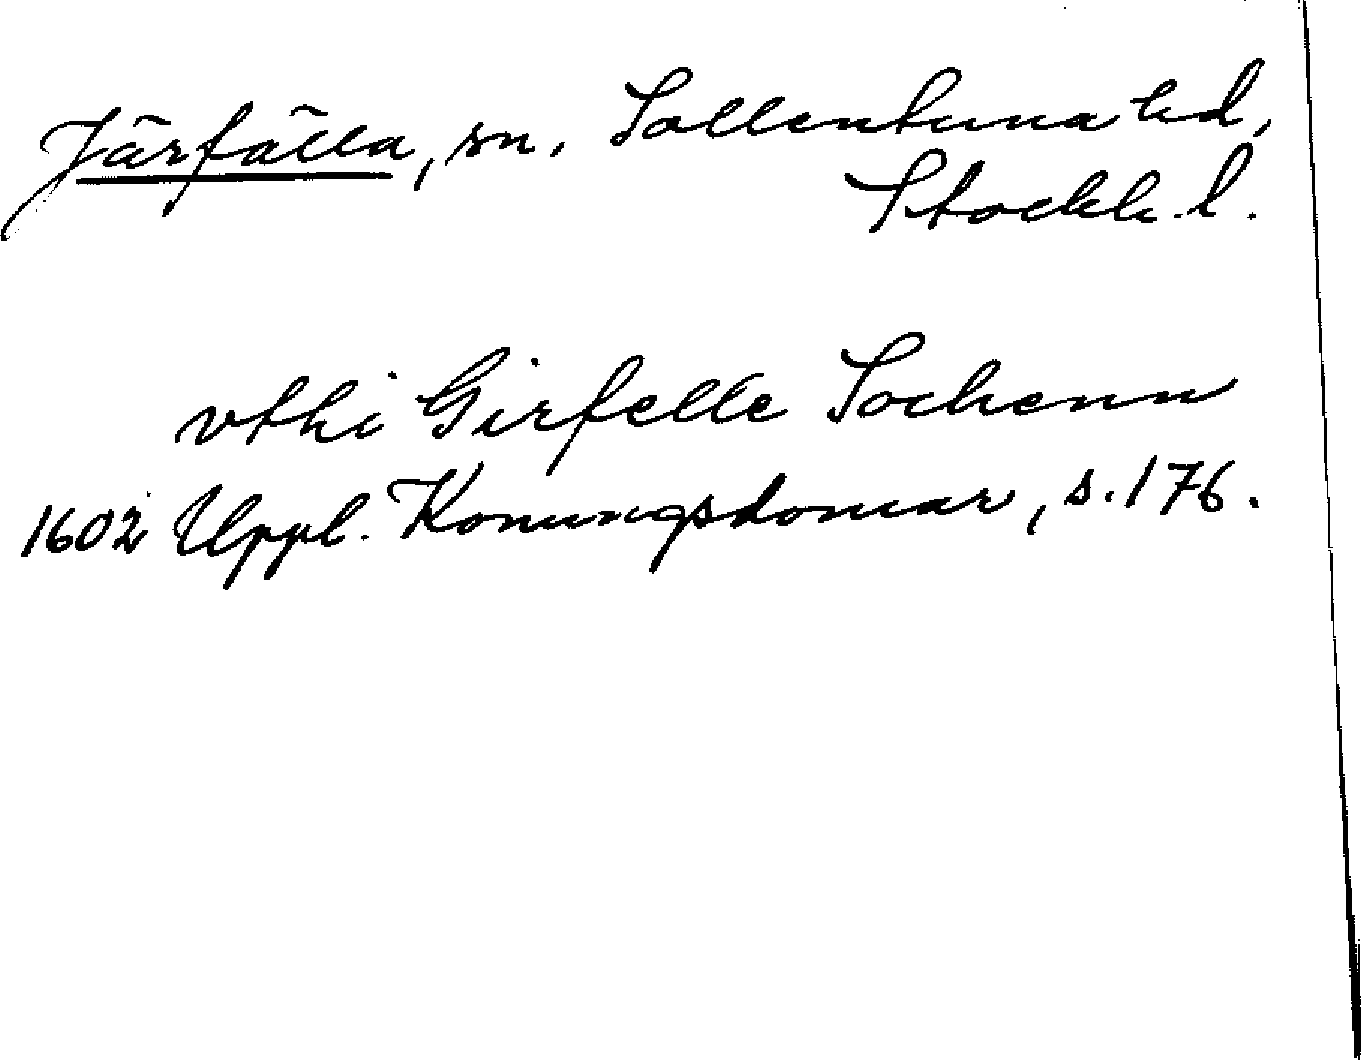 Järfälla, sn, Sollentuna hd,
Stockh. l.
vthi Girfelle Sochenn
1602 Uppl. Konungsdomar, s. 176.